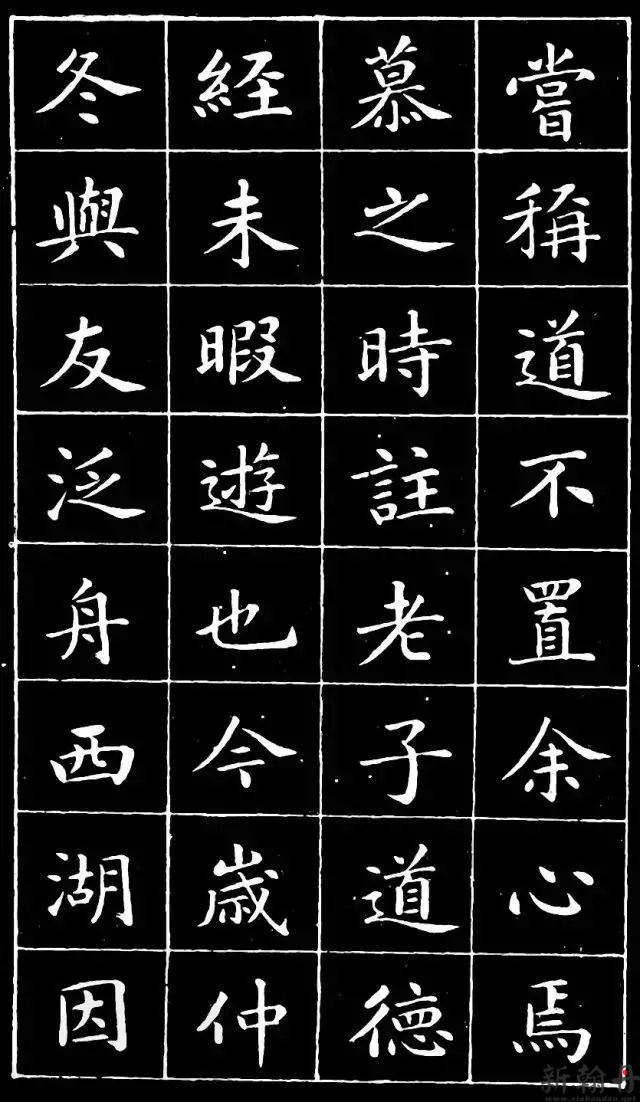 嘗稱道不置余心焉
慕之時註老子道德
經未暇遊也今歲仲
冬與友泛舟西湖因
新翰舟
www.xinhandao.net